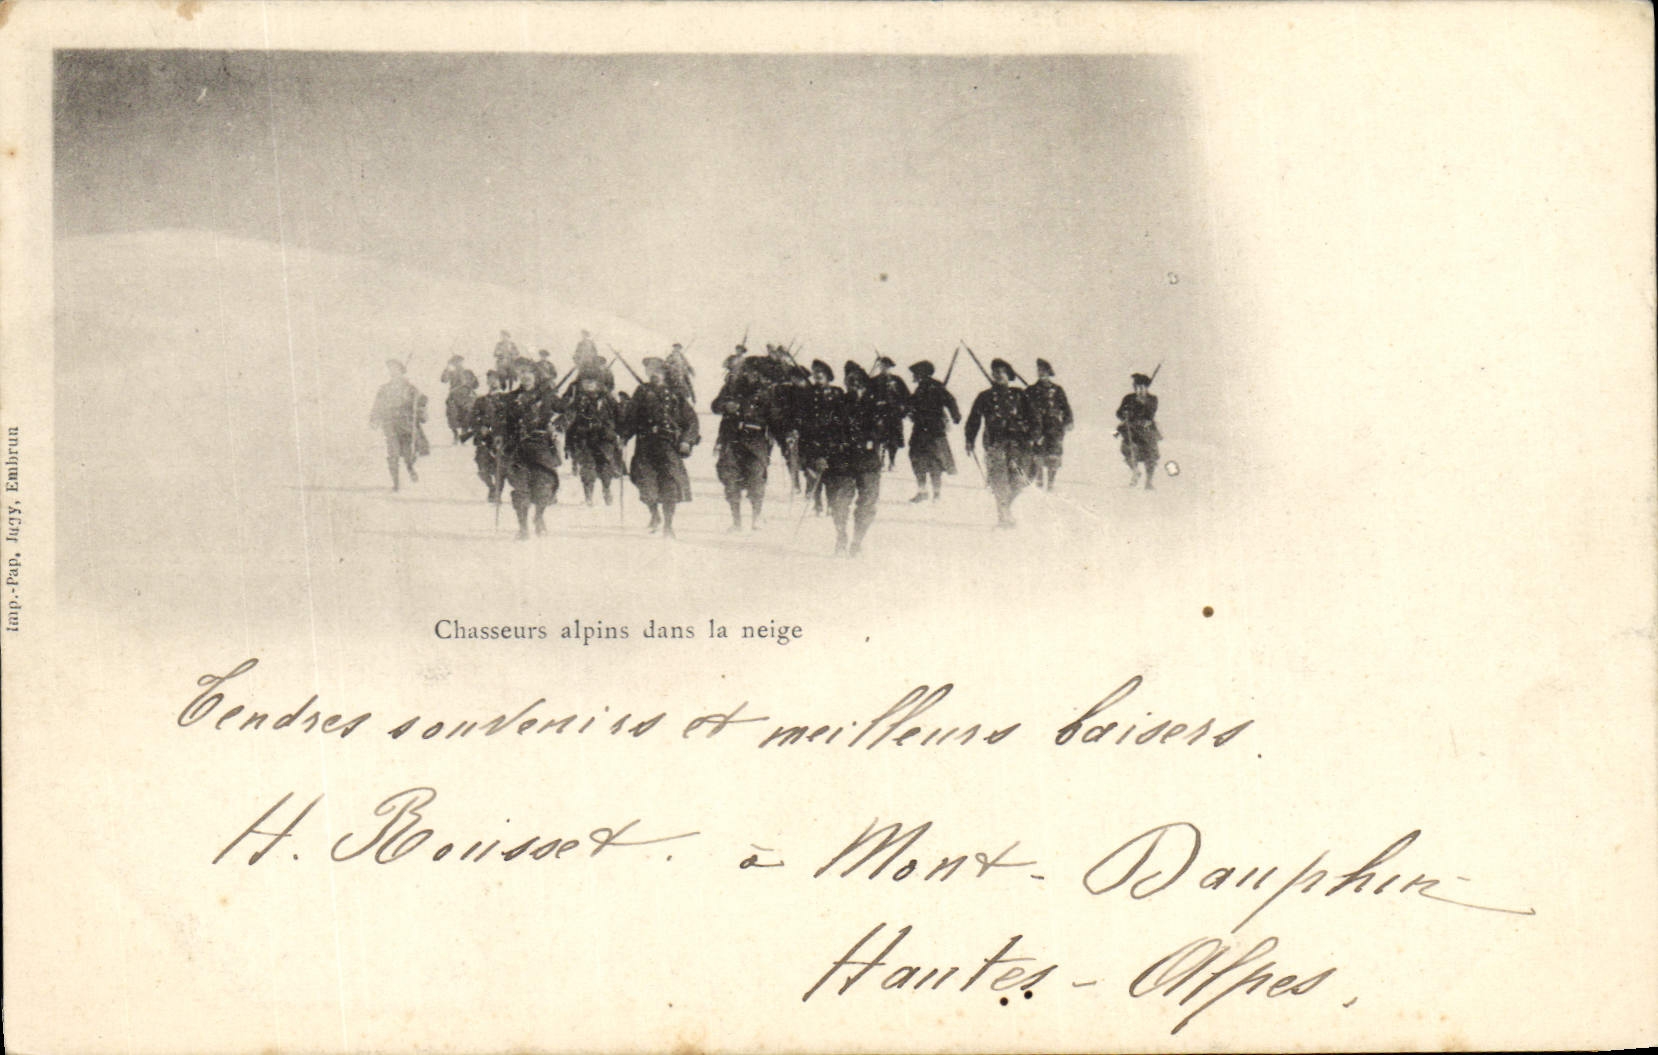 Imp.-Pap. Jugy, Embrun
Chasseurs alpins dans la neige
Tendres souvenirs et meilleurs baisers.
H. Rousset. à Mont-Dauphin
Hautes-Alpes.